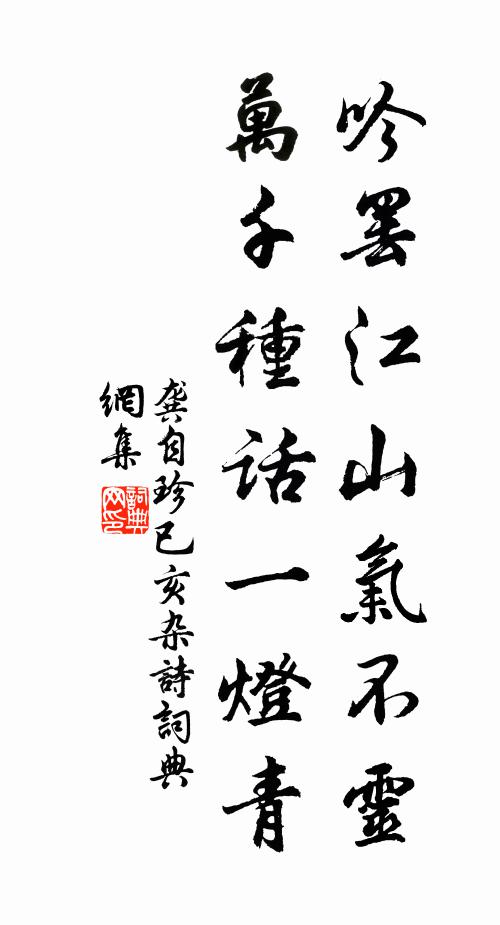 吟罷江山氣不靈
萬千種話一燈青
龔自珍已亥杂詩詞典
網集
詞典網印